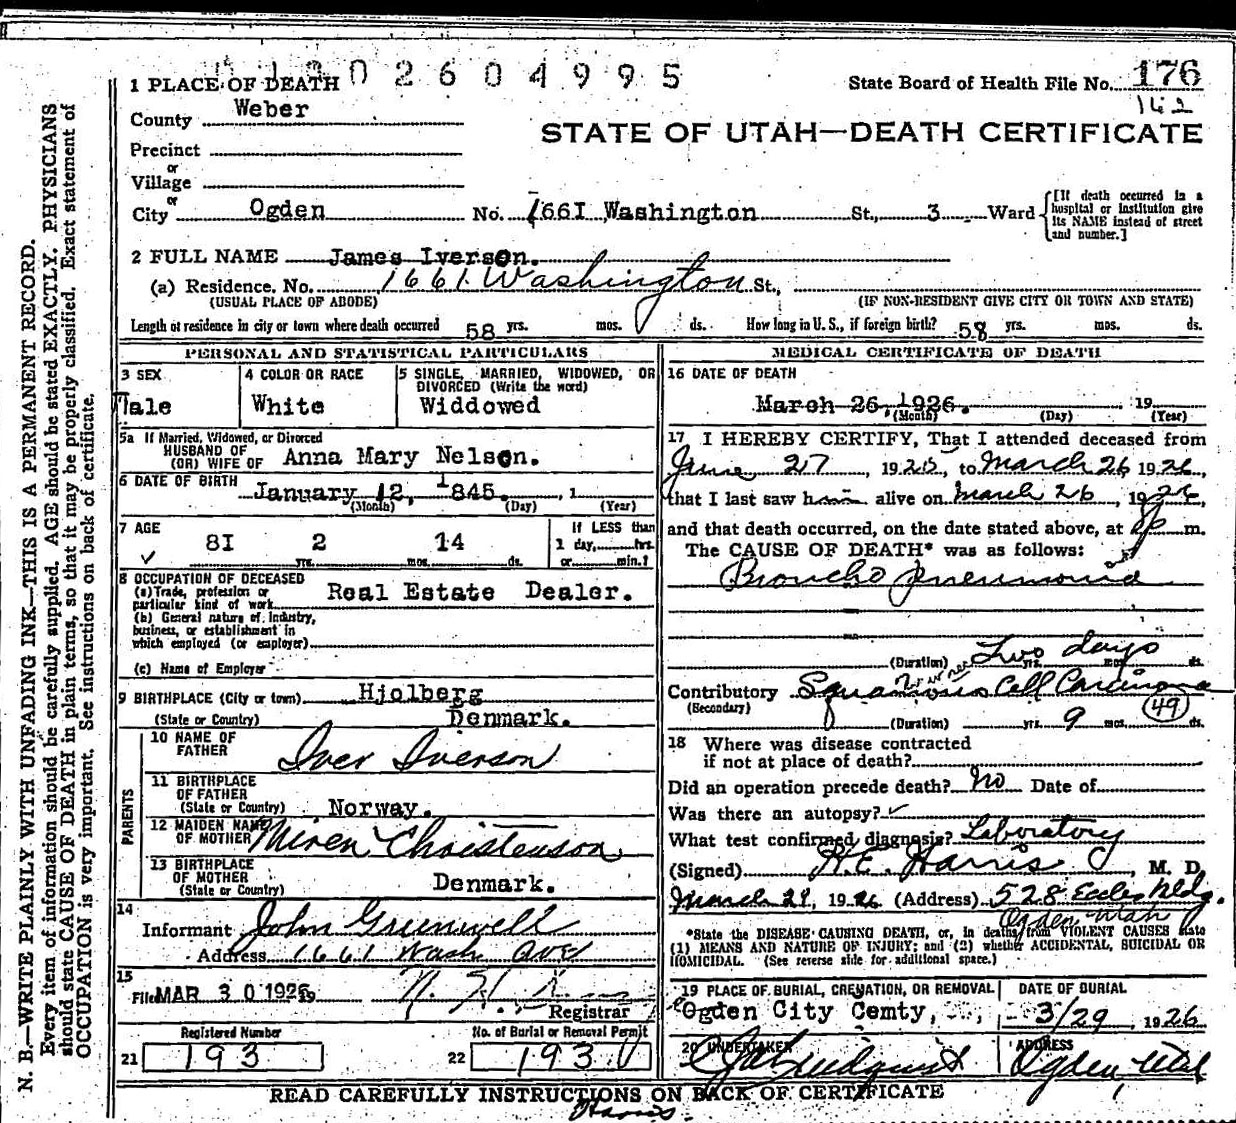 N. B.—WRITE PLAINLY WITH UNFADING INK—THIS IS A PERMANENT RECORD.
Every item of information should be carefully supplied. AGE should be stated EXACTLY. PHYSICIANS
should state CAUSE OF DEATH in plain terms, so that it may be properly classified. Exact statement of
OCCUPATION is very important. See instructions on back of certificate.
2604995
1 PLACE OF DEATH
State Board of Health File No. 176
162
County Weber
STATE OF UTAH—DEATH CERTIFICATE
Precinct
or
Village
or
City Ogden No. 1661 Washington St., 3 Ward
[If death occurred in a
hospital or institution give
its NAME instead of street
and number.]
2 FULL NAME James Iverson.
(a) Residence. No. 1661 Washington St.,
(USUAL PLACE OF ABODE) (IF NON-RESIDENT GIVE CITY OR TOWN AND STATE)
Length of residence in city or town where death occurred 58 yrs. mos. ds. How long in U. S., if foreign birth? 58 yrs. mos. ds.
PERSONAL AND STATISTICAL PARTICULARS
3 SEX
Male
4 COLOR OR RACE
White
5 SINGLE, MARRIED, WIDOWED, OR
DIVORCED (Write the word)
Widdowed
5a If Married, Widowed, or Divorced
HUSBAND OF
(OR) WIFE OF Anna Mary Nelson.
6 DATE OF BIRTH January 12, 1845. , 1
(Month) (Day) (Year)
7 AGE
81 yrs. 2 mos. 14 ds.
If LESS than
1 day, hrs.
or min.?
8 OCCUPATION OF DECEASED
(a) Trade, profession or
particular kind of work Real Estate Dealer.
(b) General nature of industry,
business, or establishment in
which employed (or employer)
(c) Name of Employer
9 BIRTHPLACE (City or town) Hjolberg
(State or Country) Denmark.
PARENTS
10 NAME OF
FATHER Iver Iverson
11 BIRTHPLACE
OF FATHER
(State or Country) Norway.
12 MAIDEN NAME
OF MOTHER Miren Christenson
13 BIRTHPLACE
OF MOTHER
(State or Country) Denmark.
14
Informant John Greenwell
Address 1661 Wash ave
15
Filed MAR 30 1926
Registrar
Registered Number
21 193
No. of Burial or Removal Permit
22 193
MEDICAL CERTIFICATE OF DEATH
16 DATE OF DEATH
March 26, 1926. 19
(Month) (Day) (Year)
17 I HEREBY CERTIFY, That I attended deceased from
June 27, 1925, to March 26 1926,
that I last saw him alive on March 26, 1926
and that death occurred, on the date stated above, at m.
The CAUSE OF DEATH* was as follows:
Broncho pneumonia
(Duration) Two days yrs. mos. ds.
Contributory Squamous Cell Carcinoma
(Secondary)
(49)
(Duration) yrs. 9 mos. ds.
18 Where was disease contracted
if not at place of death?
Did an operation precede death? No Date of
Was there an autopsy?
What test confirmed diagnosis? Laboratory
(Signed) H.E. Harris, M. D.
March 29, 1926 (Address) 528 Eccles Bldg.
Ogden, Utah
*State the DISEASE CAUSING DEATH, or, in deaths from VIOLENT CAUSES state
(1) MEANS AND NATURE OF INJURY; and (2) whether ACCIDENTAL, SUICIDAL OR
HOMICIDAL. (See reverse side for additional space.)
19 PLACE OF BURIAL, CREMATION, OR REMOVAL
Ogden City Cemty,
DATE OF BURIAL
3/29, 1926
20 UNDERTAKER
Lindquist
ADDRESS
Ogden, Utah
READ CAREFULLY INSTRUCTIONS ON BACK OF CERTIFICATE
Harris.